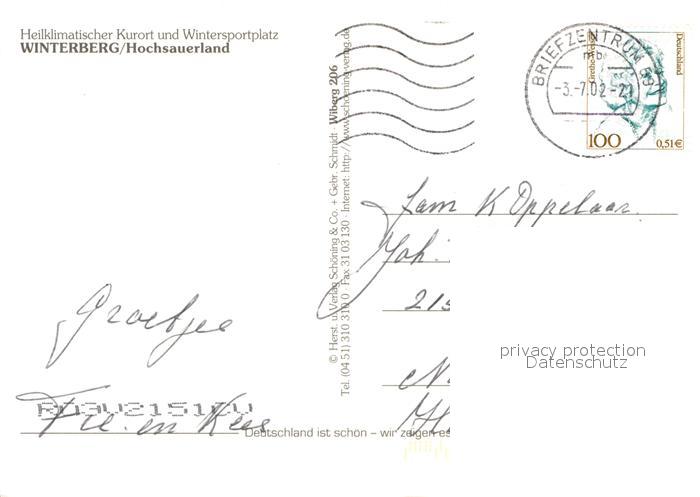 Heilklimatischer Kurort und Wintersportplatz
WINTERBERG/Hochsauerland
© Herst. u. Verlag Schöning & Co. + Gebr. Schmidt · Wiberg 206
Tel. (04 51) 310 310 0 · Fax 31 03 130 · Internet: http://www.schoening-verlag.de
BRIEFZENTRUM 59
mb
-3.-7.02-21
Deutschland
100
0,51€
Fam K Oppelaar.
Joh.
215
privacy protection
Datenschutz
Groetjes
Fie en Kees
Deutschland ist schön – wir zeigen es